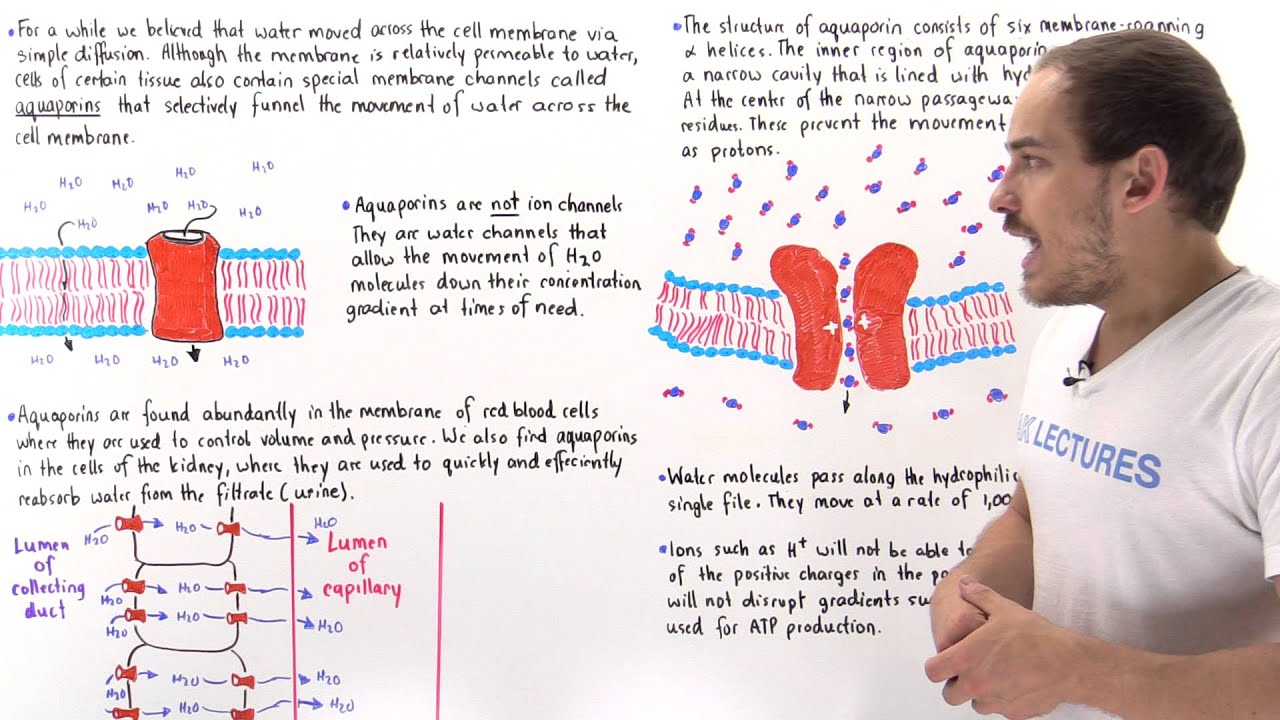 • For a while we believed that water moved across the cell membrane via
simple diffusion. Although the membrane is relatively permeable to water,
cells of certain tissue also contain special membrane channels called
aquaporins that selectively funnel the movement of water across the
cell membrane.
H2O H2O H2O H2O
H2O H2O H2O H2O H2O
H2O H2O H2O H2O
• Aquaporins are not ion channels
They are water channels that
allow the movement of H2O
molecules down their concentration
gradient at times of need.
• Aquaporins are found abundantly in the membrane of red blood cells
where they are used to control volume and pressure. We also find aquaporins
in the cells of the kidney, where they are used to quickly and effeciently
reabsorb water from the filtrate (urine).
Lumen
of
collecting
duct
H2O H2O H2O
H2O H2O
H2O H2O H2O
H2O H2O H2O
H2O H2O H2O
Lumen
of
capillary
• The structure of aquaporin consists of six membrane-spanning
α helices. The inner region of aquaporin
a narrow cavity that is lined with
At the center of the narrow
residues. These prevent the movement
as protons.
+ +
• Water molecules pass along the hydrophilic
single file. They move at a rate of
• Ions such as H+ will not be able
of the positive charges in the
will not disrupt gradients
used for ATP production.
AK LECTURES